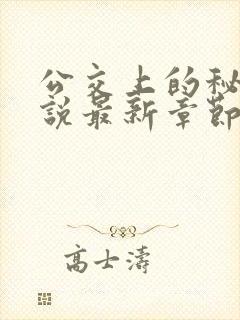 公交上的秘
説最新章節
高士濤